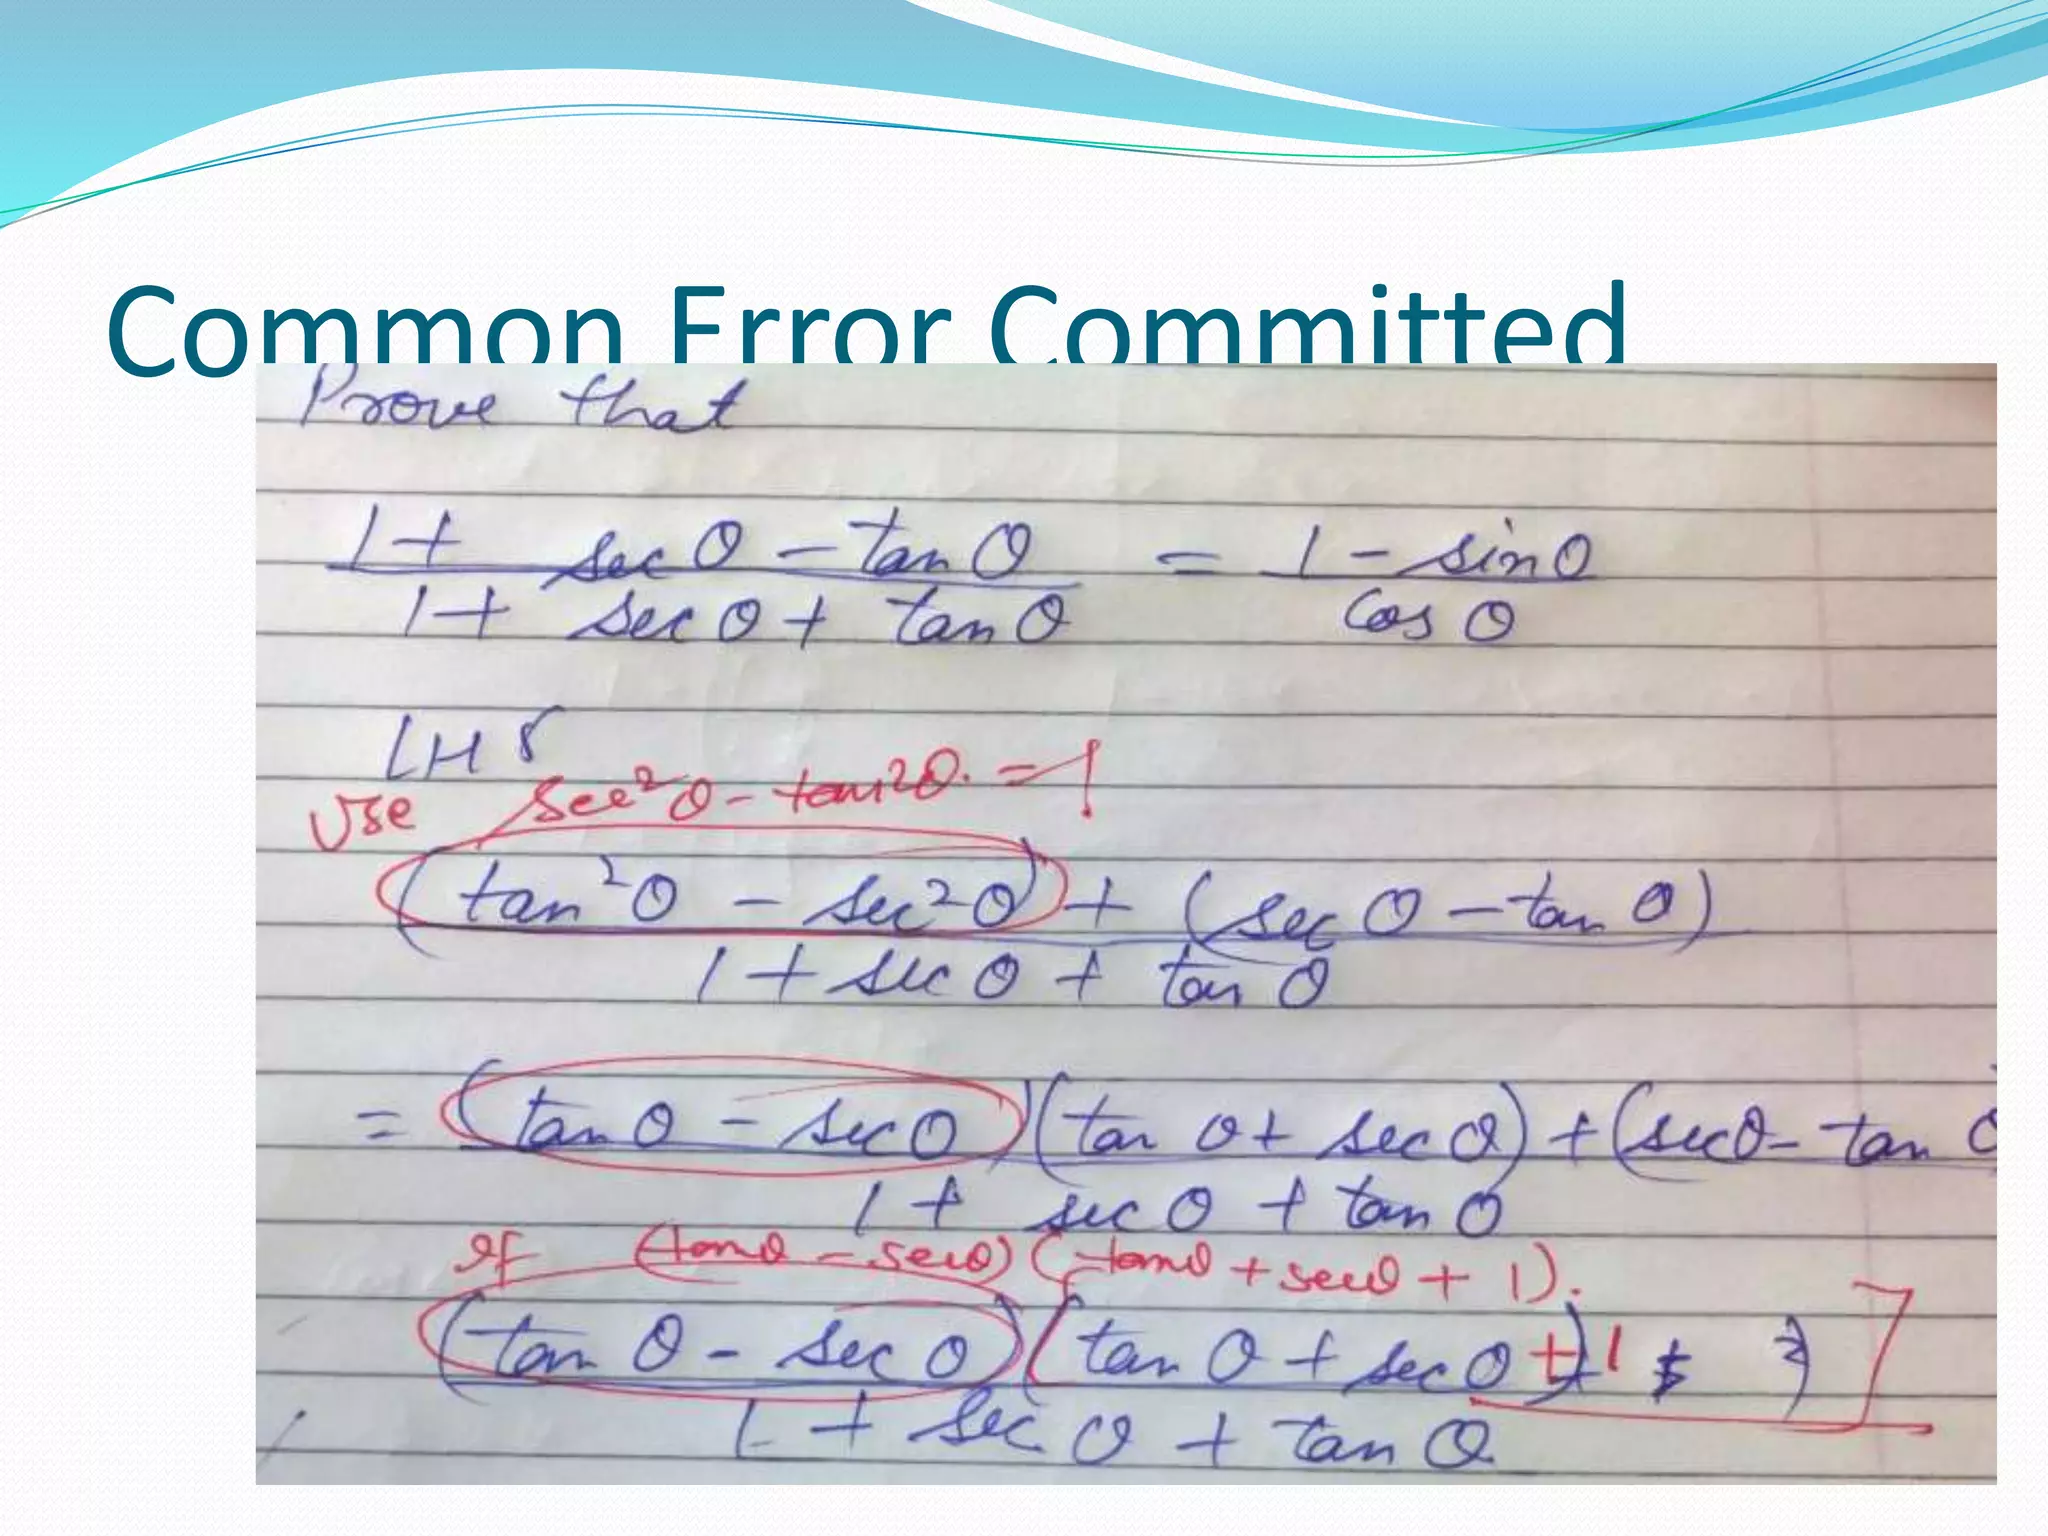 Common Error Committed
Prove that
1 + sec θ - tan θ = 1 - sin θ
1 + sec θ + tan θ cos θ
LHS
Use sec²θ - tan²θ. = 1
(tan²θ - sec²θ) + (sec θ - tan θ)
1 + sec θ + tan θ
= (tan θ - sec θ)(tan θ + sec θ) + (sec θ - tan θ
1 + sec θ + tan θ
If (tanθ - secθ) (tanθ + secθ + 1).
(tan θ - sec θ) (tan θ + sec θ + 1 )
1 + sec θ + tan θ